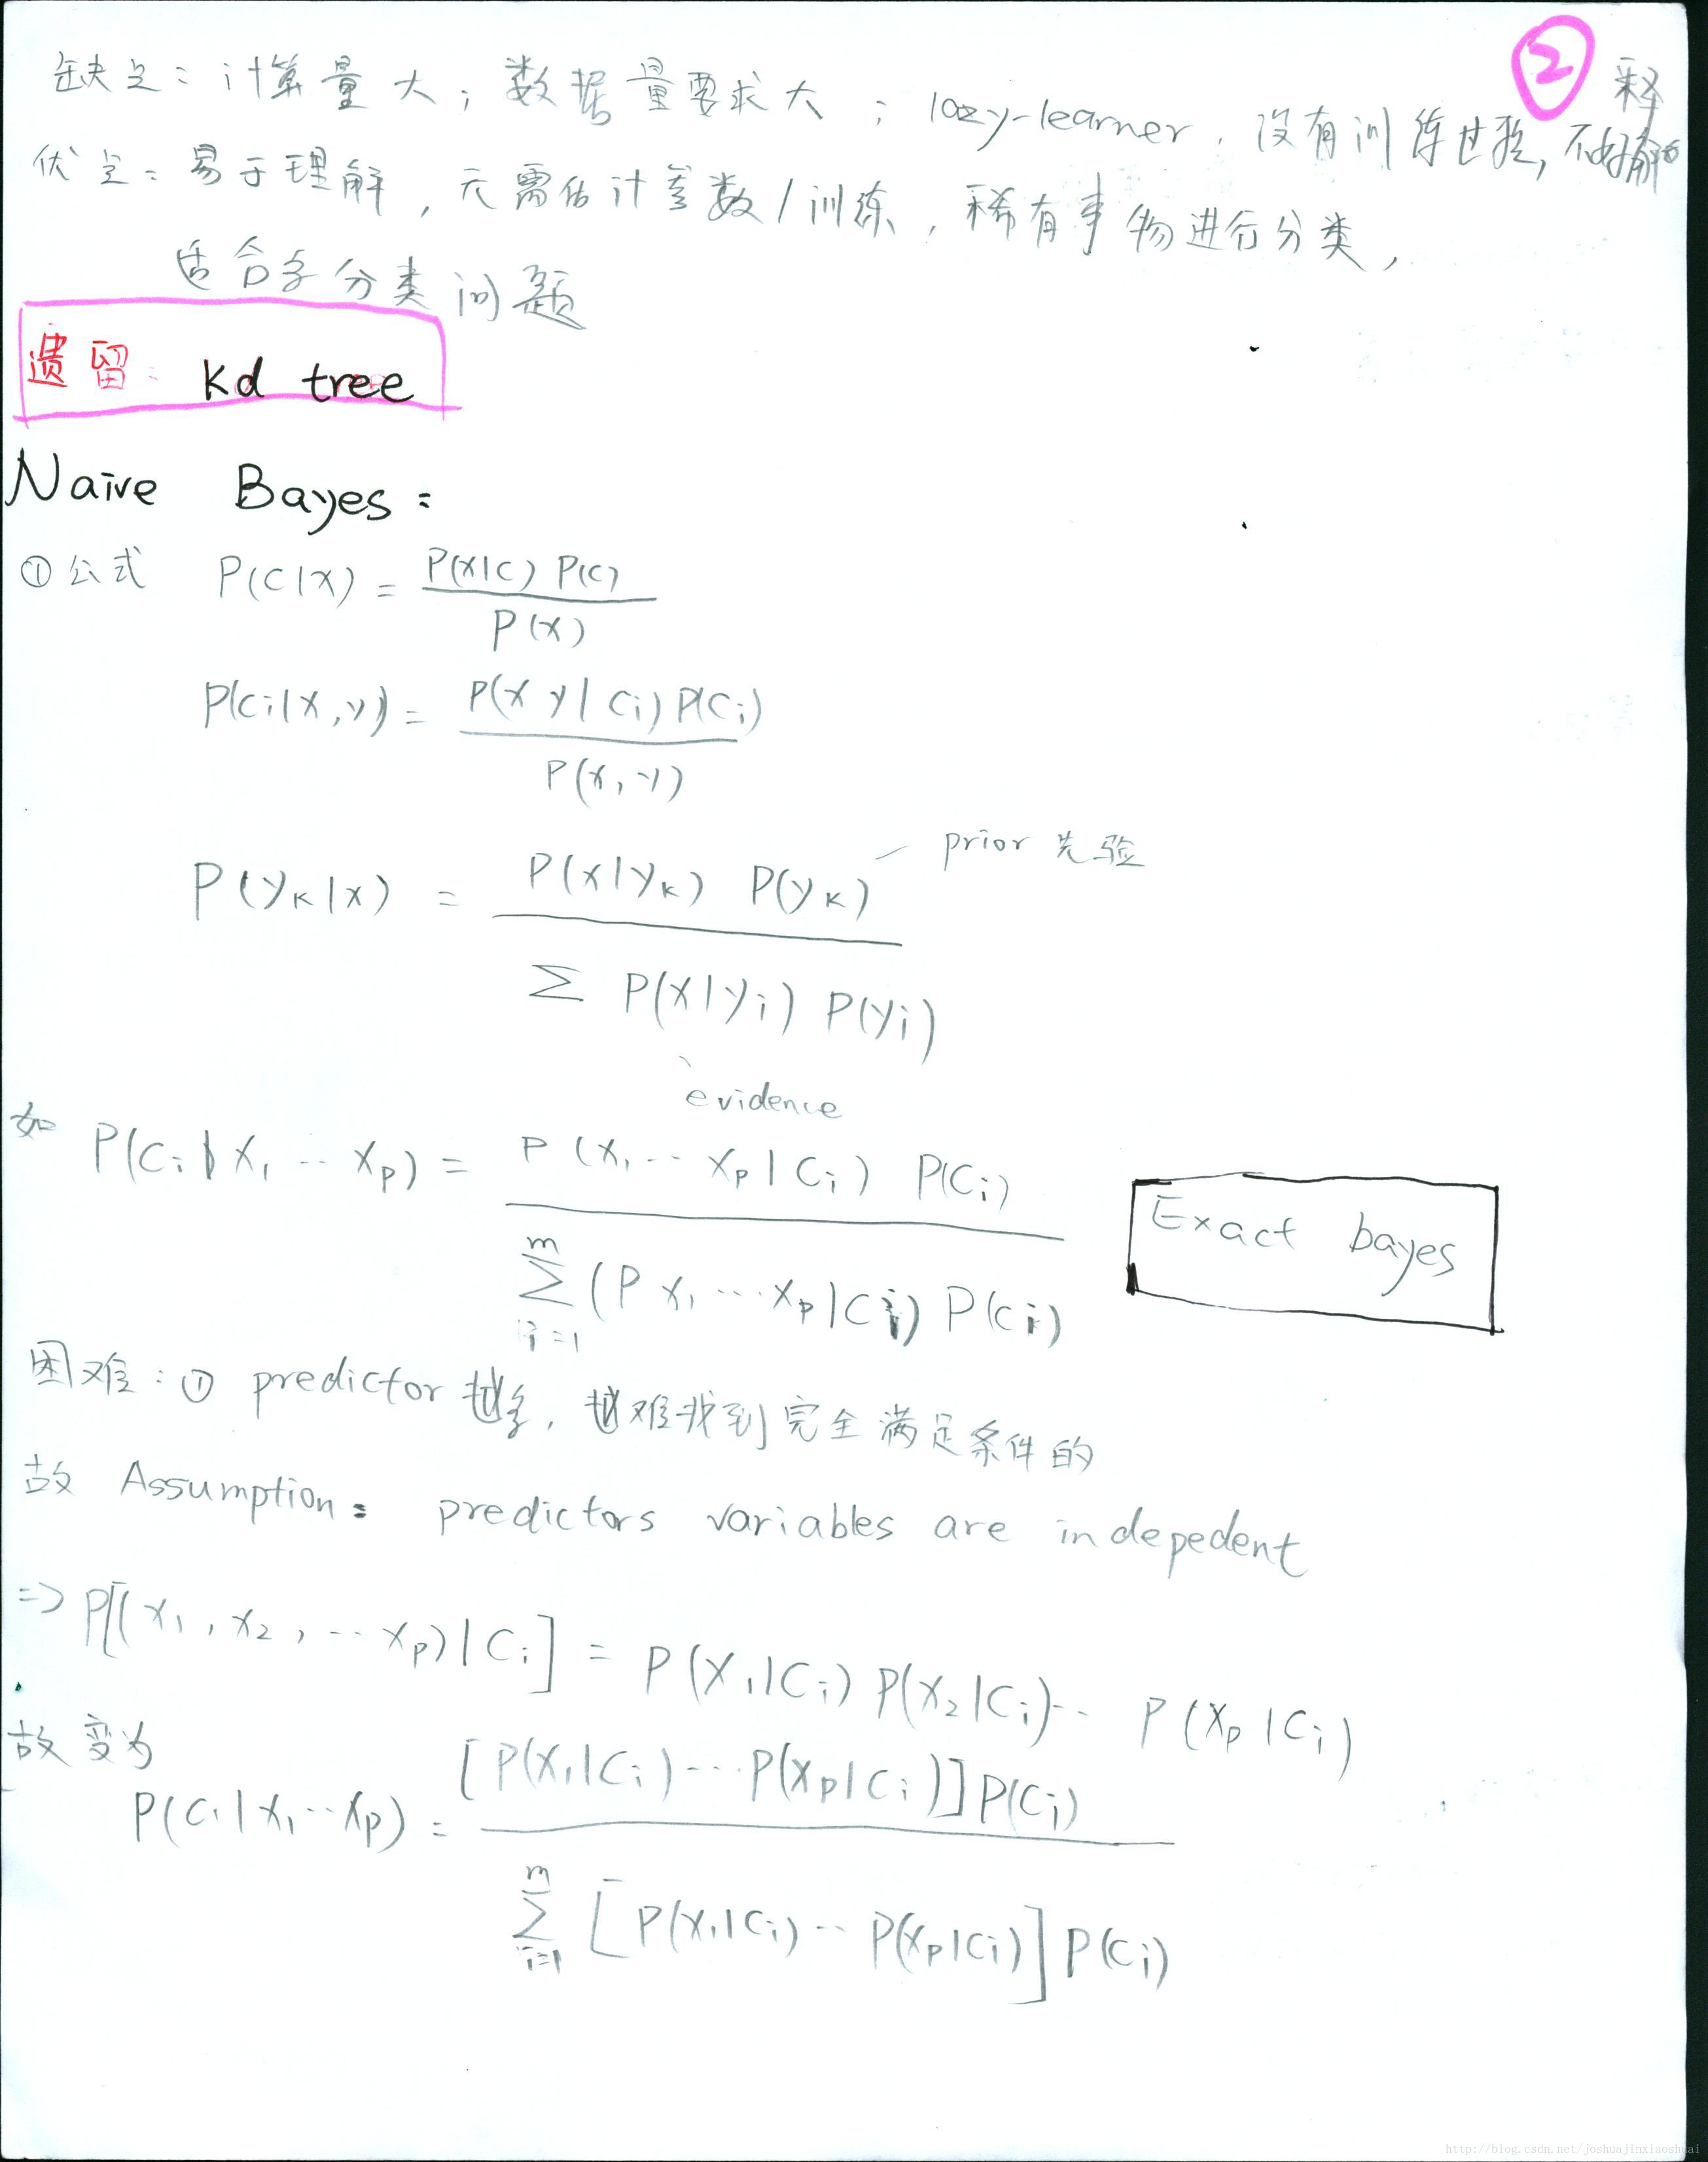 ②
缺点：计算量大；数据量要求大；lazy-learner，没有训练过程，不好解释
优点：易于理解，无需估计参数/训练，稀有事物进行分类，
适合多分类问题
遗留：Kd tree
Naive Bayes：
① 公式 P(C|X) = P(X|C) P(C) / P(X)
P(Ci|X,y) = P(X y|Ci) P(Ci) / P(x,y)
P(yK|x) = P(x|yK) P(yK) / Σ P(X|yi) P(yi)
prior 先验
evidence
如 P(Ci|X1 ·· Xp) = P(X1 ··· Xp|Ci) P(Ci) / Σ_{i=1}^{m} (P X1 ··· Xp|Ci) P(Ci)
Exact bayes
困难：① predictor越多，越难找到完全满足条件的
故 Assumption：predictors variables are indepedent
=> P[(X1, X2, ·· Xp)|Ci] = P(X1|Ci) P(X2|Ci)·· P(Xp|Ci)
故变为
P(Ci|X1··Xp) = [P(X1|Ci)···P(Xp|Ci)] P(Ci) / Σ_{i=1}^{m} [P(X1|Ci)·· P(Xp|Ci)] P(Ci)
http://blog.csdn.net/joshuajinxiaoshuai